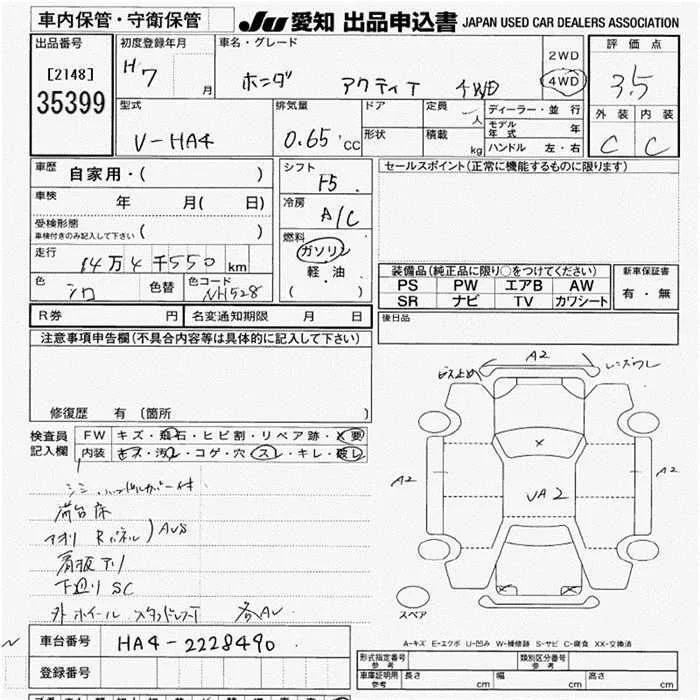 車内保管・守衛保管
JU 愛知 出品申込書 JAPAN USED CAR DEALERS ASSOCIATION
出品番号
[2148]
35399
初度登録年月
H7 月
車名・グレード
ホンダ アクティT 4WD
2WD
4WD
評価点
3.5
外装 内装
C C
型式
V-HA4
排気量
0.65 cc
ドア
形状
定員 人
積載 kg
ディーラー・並行
モデル年式 年
ハンドル 左・右
車歴 自家用・( )
車検 年 月( 日)
受検形態
車検付きのみ記入して下さい ( )
走行 14万4千550 km
色 シロ 色替 色コード NH528
シフト F5
冷房 A/C
燃料
ガソリン
軽油
( )
セールスポイント(正常に機能するものに限ります)
装備品(純正品に限り○をつけてください)
PS PW エアB AW
SR ナビ TV カワシート
新車保証書
有・無
後日品
R券 円 名変通知期限 月 日
注意事項申告欄(不具合内容等は具体的に記入して下さい)
修復歴 有(箇所 )
検査員
記入欄
FW キズ・飛石・ヒビ割・リペア跡・X要
内装 キズ・汚レ・コゲ・穴・スレ・キレ・破レ
荷台床
アオリ Rパネル)AUS
看板アリ
下廻りSC
外ホイール
A2
ビス止め
A2
A2
UA2
スペア
車台番号 HA4-2228490
登録番号
A-キズ E-エクボ U-凹み W-補修跡 S-サビ C-腐食 XX-交換済
形式指定番号
参考
類別区分番号
参考
車庫証明用
参考
長さ cm 幅 cm 高さ cm